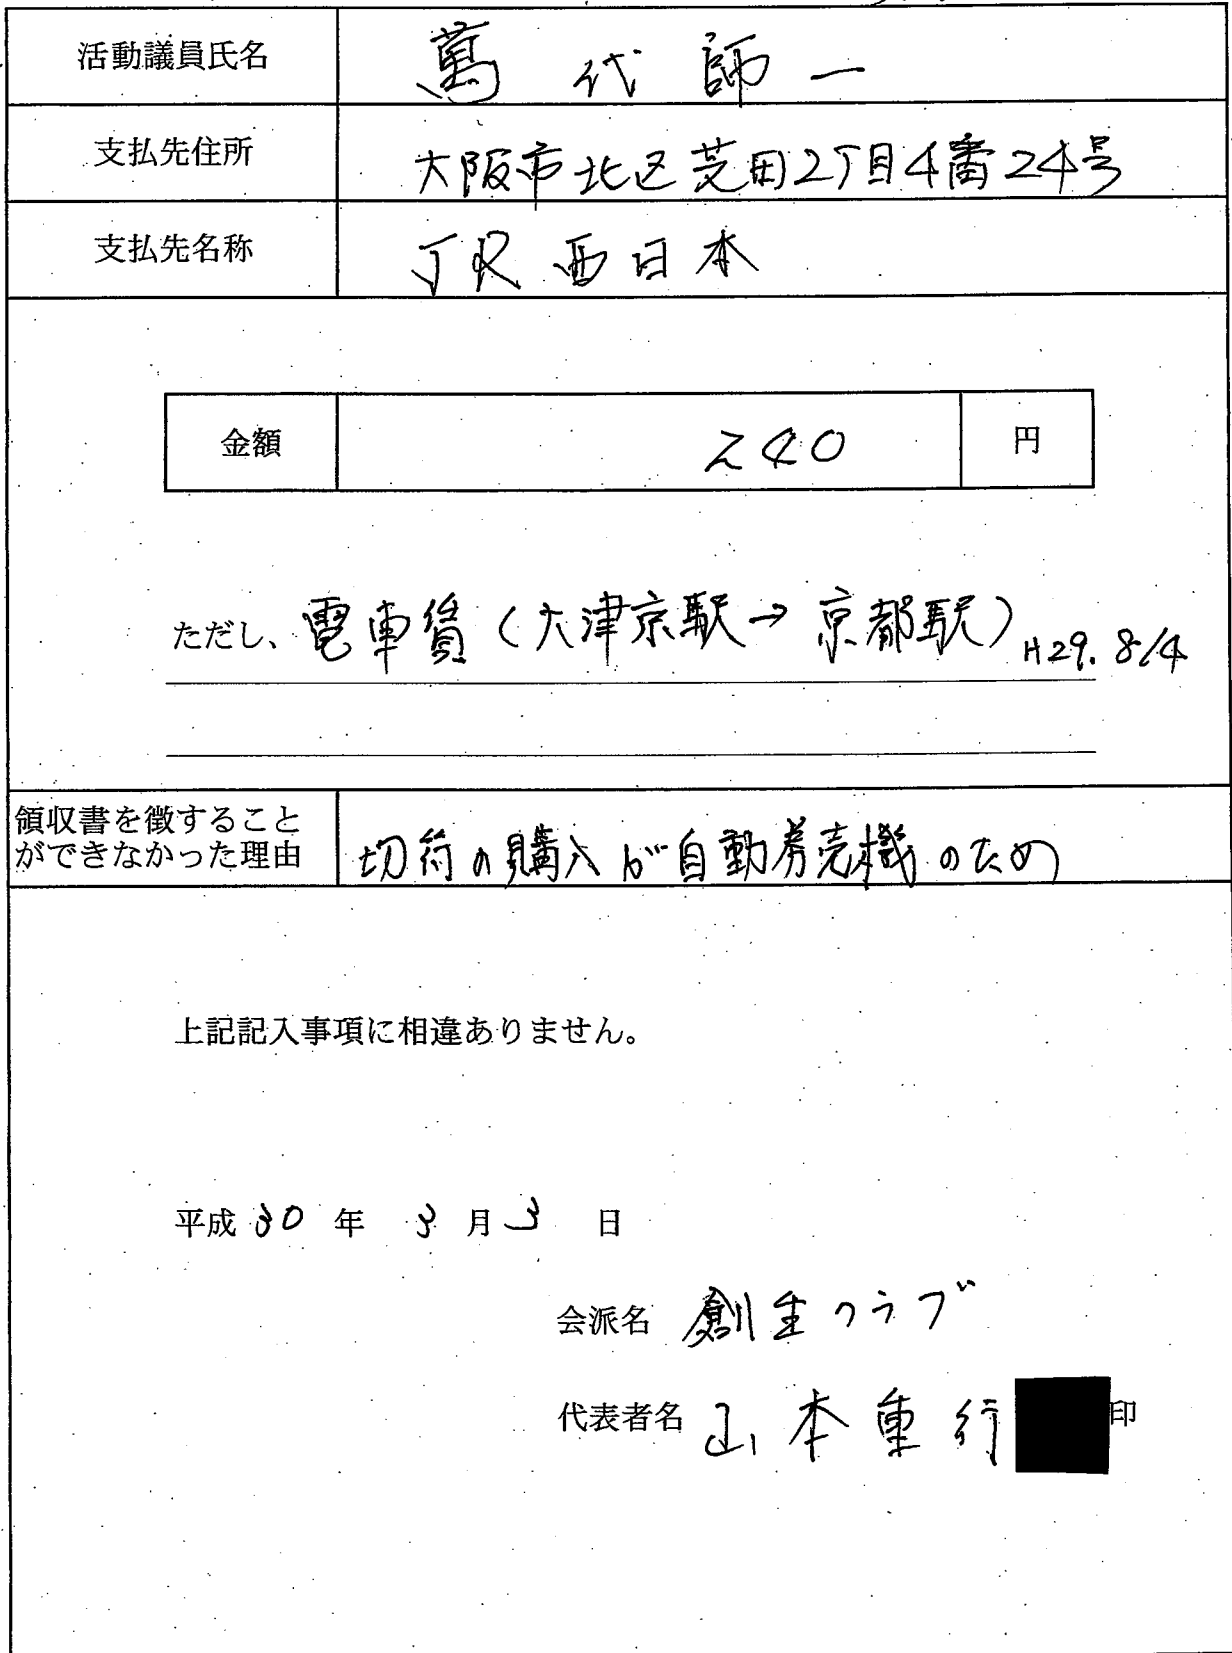 活動議員氏名 萬代師一
支払先住所 大阪市北区芝田2丁目4番24号
支払先名称 JR西日本
金額 240 円
ただし、電車賃(大津京駅→京都駅)H29.8/4
領収書を徴すること
ができなかった理由 切符の購入が自動券売機のため
上記記入事項に相違ありません。
平成30年 3月3日
会派名 創生クラブ
代表者名 山本重行 印